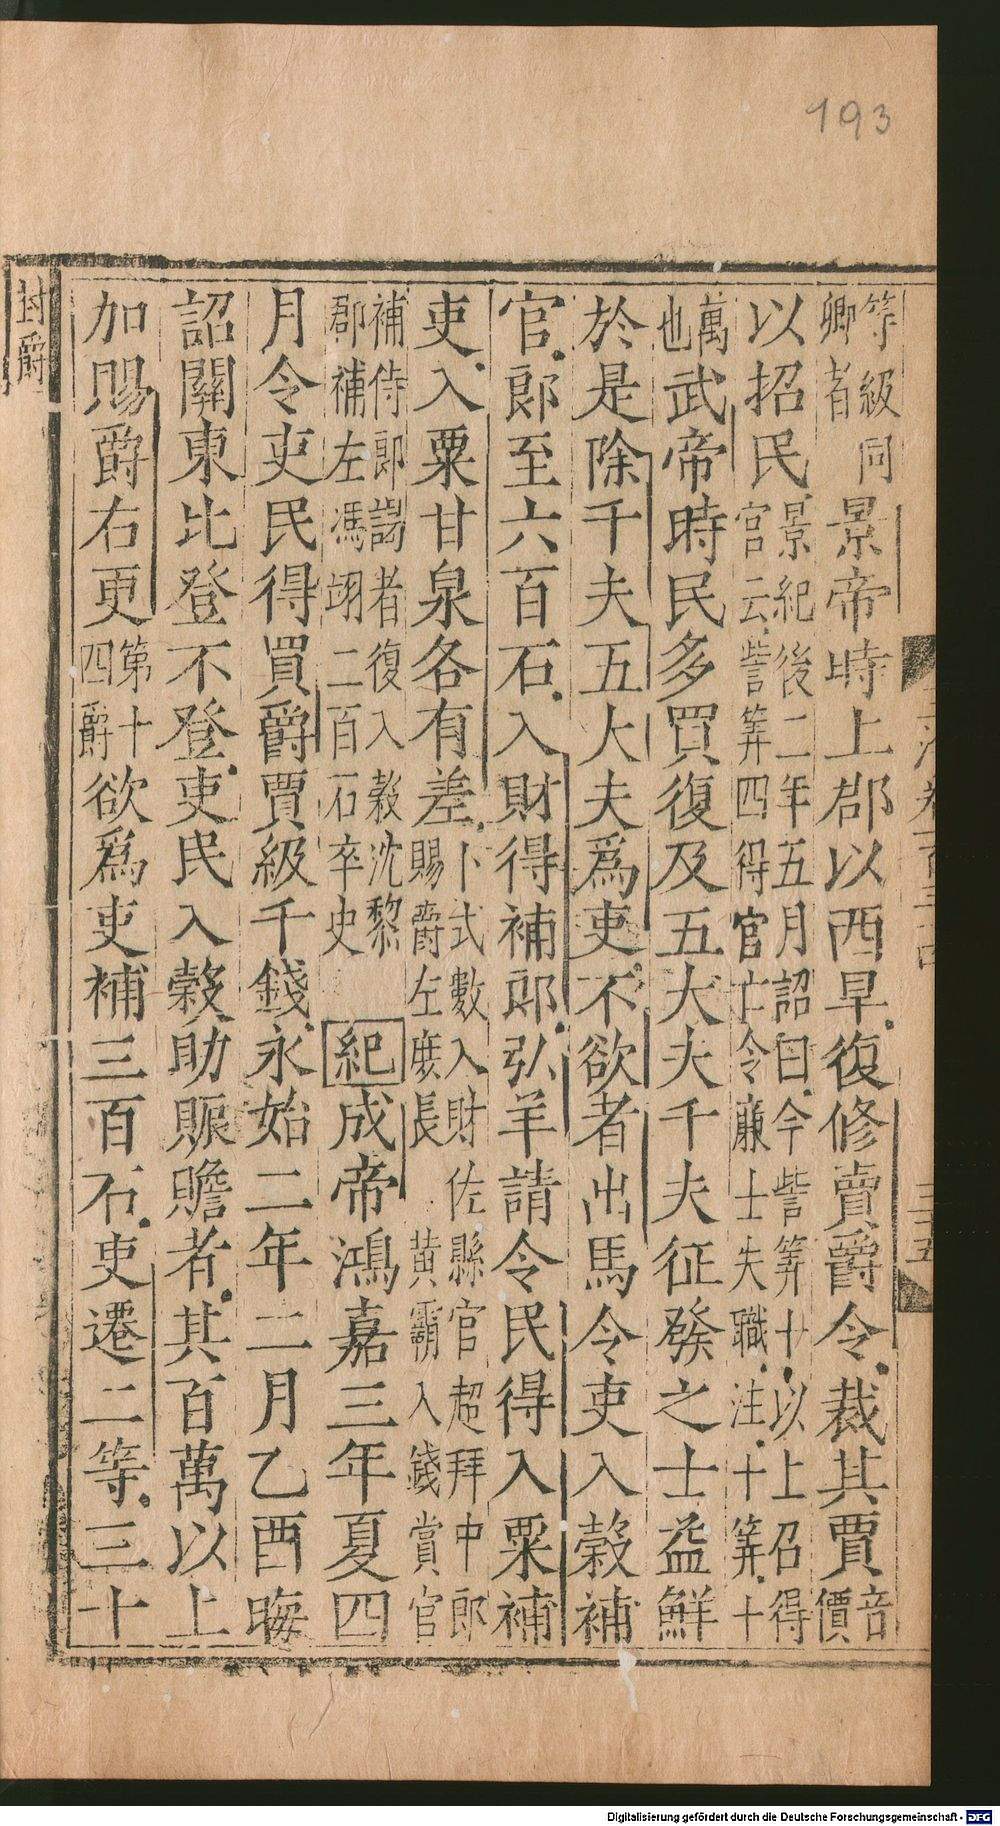 193
等級同卿者景帝時上郡以西旱復修賣爵令裁其賈音價
以招民景紀後二年五月詔曰今訾筭十以上召得官云訾筭四得官亡令廉士失職注十筭十
萬也武帝時民多買復及五大夫千夫征發之士益鮮
於是除千夫五大夫爲吏不欲者出馬令吏入穀補
官郎至六百石入財得補郎弘羊請令民得入粟補
吏入粟甘泉各有差卜式數入財佐縣官超拜中郎賜爵左庶長黃霸入錢賞官
補侍郎謁者復入穀沈黎郡補左馮翊二百石卒史紀成帝鴻嘉三年夏四
月令吏民得買爵賈級千錢永始二年二月乙酉晦
詔關東比登不登吏民入穀助賑贍者其百萬以上
加賜爵右更第十四爵欲爲吏補三百石吏遷二等三十
封爵
Digitalisierung gefördert durch die Deutsche Forschungsgemeinschaft - DFG